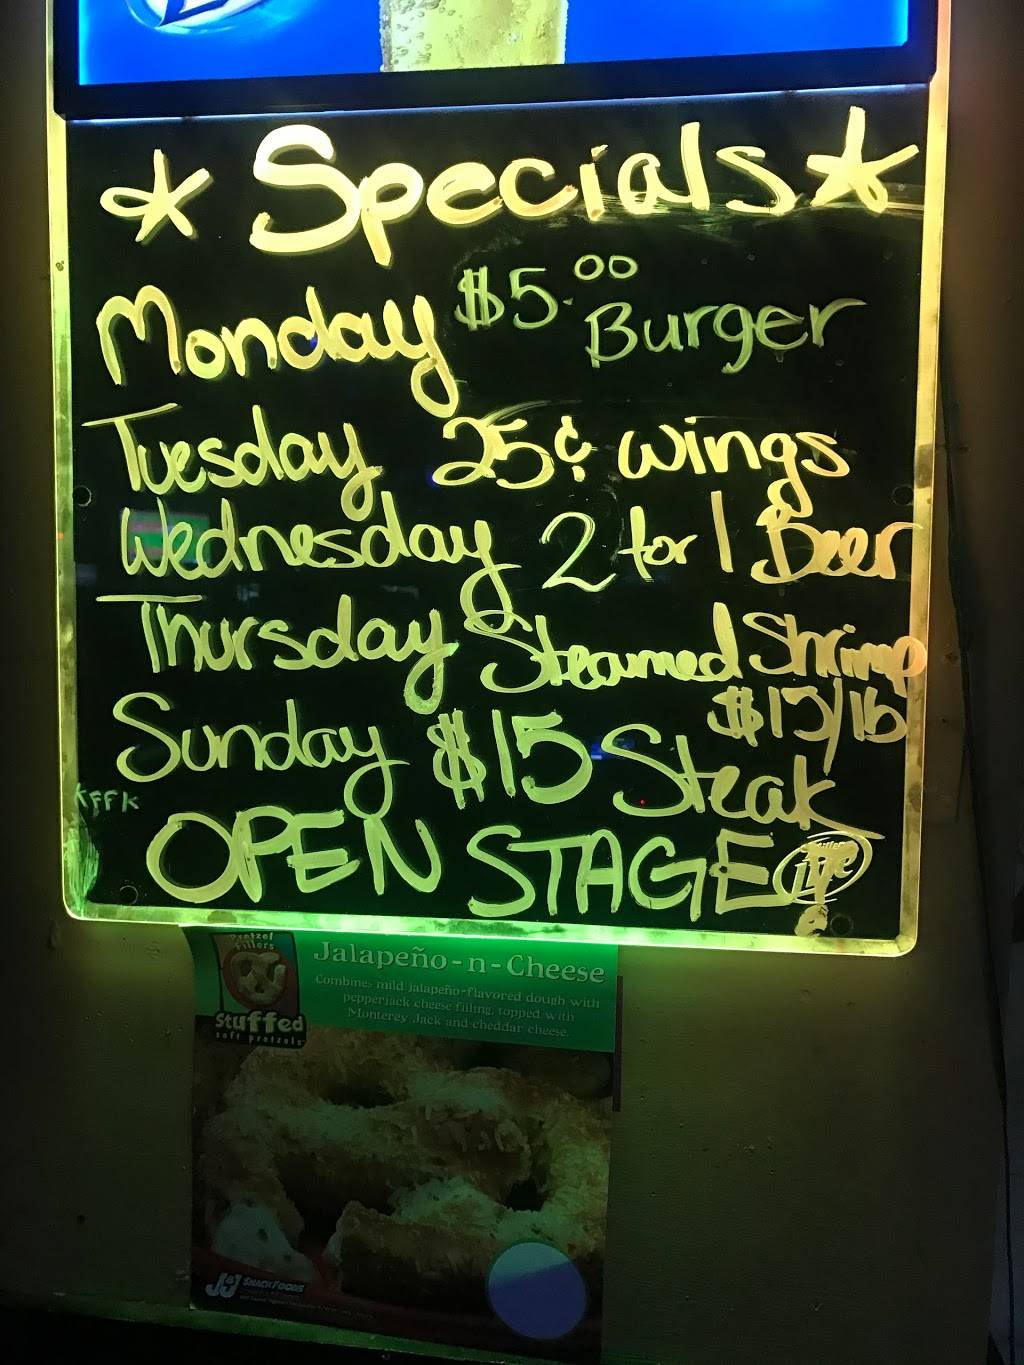 * Specials *
Monday $5.00 Burger
Tuesday 25¢ wings
Wednesday 2 for 1 Beer
Thursday Steamed Shrimp
$15/lb
Sunday $15 Steak
OPEN STAGE!
Lite
Pretzel
Fillers
Stuffed
soft pretzels
Jalapeño-n-Cheese
Combines mild jalapeño-flavored dough with
pepperjack cheese filling, topped with
Monterey Jack and cheddar cheese.
J&J SNACK FOODS